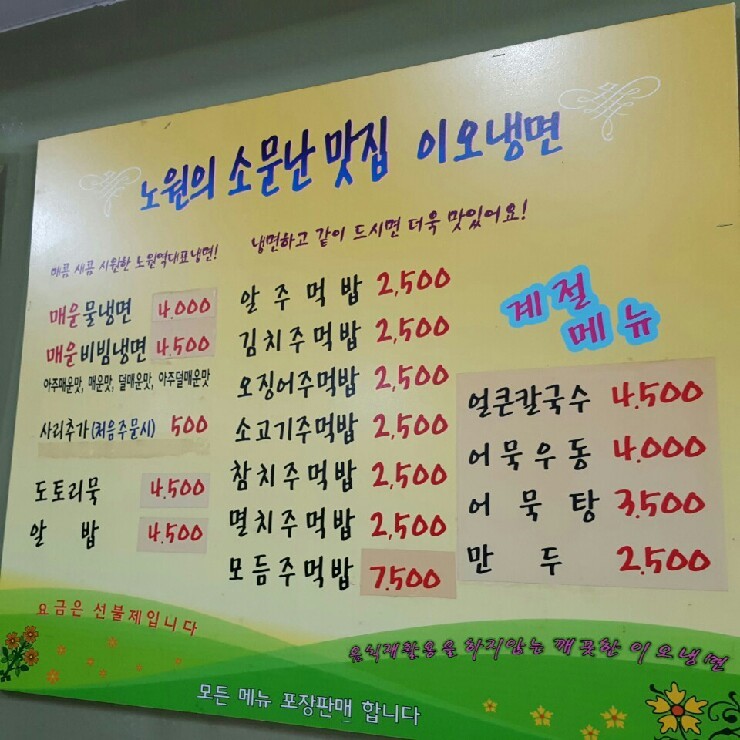 노원의 소문난 맛집 이오냉면
매콤 새콤 시원한 노원역대표냉면!
매운물냉면 4,000
매운비빔냉면 4,500
아주매운맛, 매운맛, 덜매운맛, 아주덜매운맛
사리추가(처음주문시) 500
도토리묵 4,500
알 밥 4,500
냉면하고 같이 드시면 더욱 맛있어요!
알주먹밥 2,500
김치주먹밥 2,500
오징어주먹밥 2,500
소고기주먹밥 2,500
참치주먹밥 2,500
멸치주먹밥 2,500
모듬주먹밥 7,500
계절
메뉴
얼큰칼국수 4,500
어묵우동 4,000
어묵탕 3,500
만두 2,500
요금은 선불제입니다
음식재활용을 하지않는 깨끗한 이오냉면
모든 메뉴 포장판매 합니다